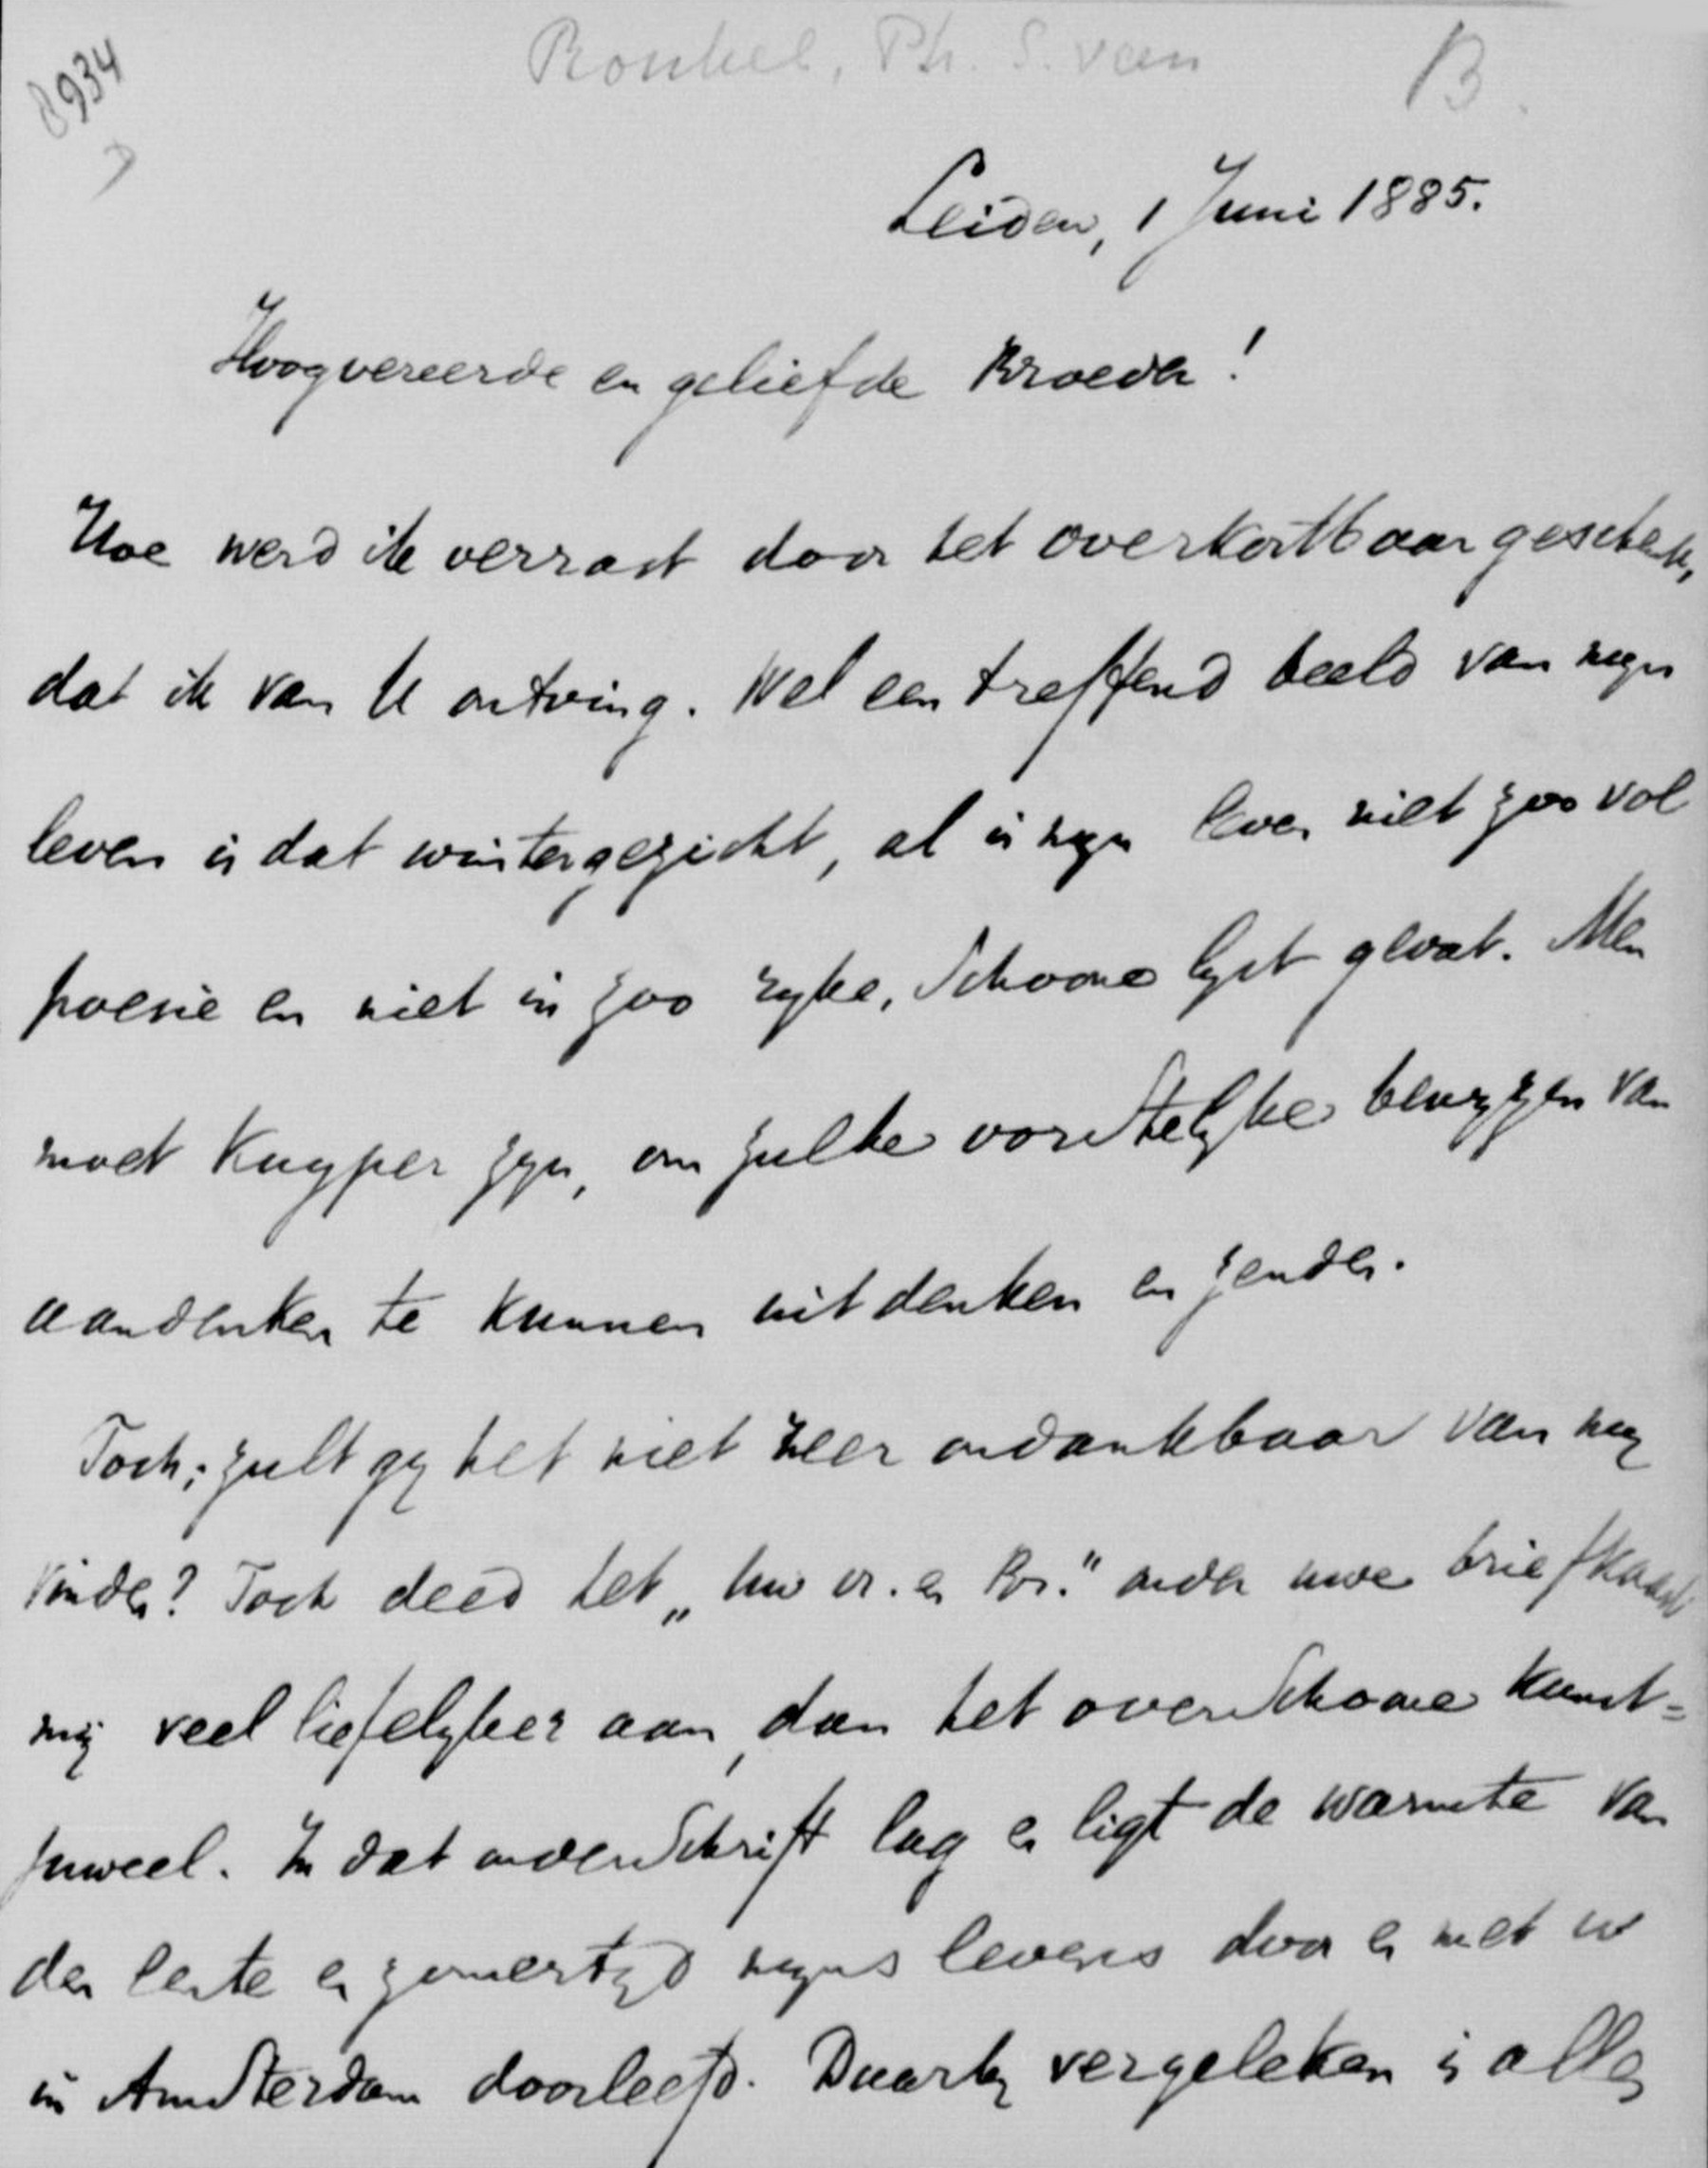 8934
Ronkel, Ph. S. van
B.
Leiden, 1 Juni 1885.
Hoogvereerde en geliefde Broeder!
Hoe werd ik verrast door het overkostbaar geschenk,
dat ik van U ontving. Wel een treffend beeld van mijn
leven is dat wintergezicht, al is mijn leven niet zoo vol
poesie en niet in zoo rijke, schoone lijst gevat. Men
moet Kuyper zijn, om zulke vorstelijke bewijzen van
aandenken te kunnen uitdenken en zenden.
Toch; zult gij het niet zeer ondankbaar van mij
vinden? Toch deed het „ Uw vr. en Br." onder uwe briefkaart
mij veel liefelijker aan, dan het overschoone kunst=
juweel. In dat onderschrift lag en ligt de warmte van
den lente en zomertijd mijns levens door en met u
in Amsterdam doorleefd. Daarbij vergeleken is alles